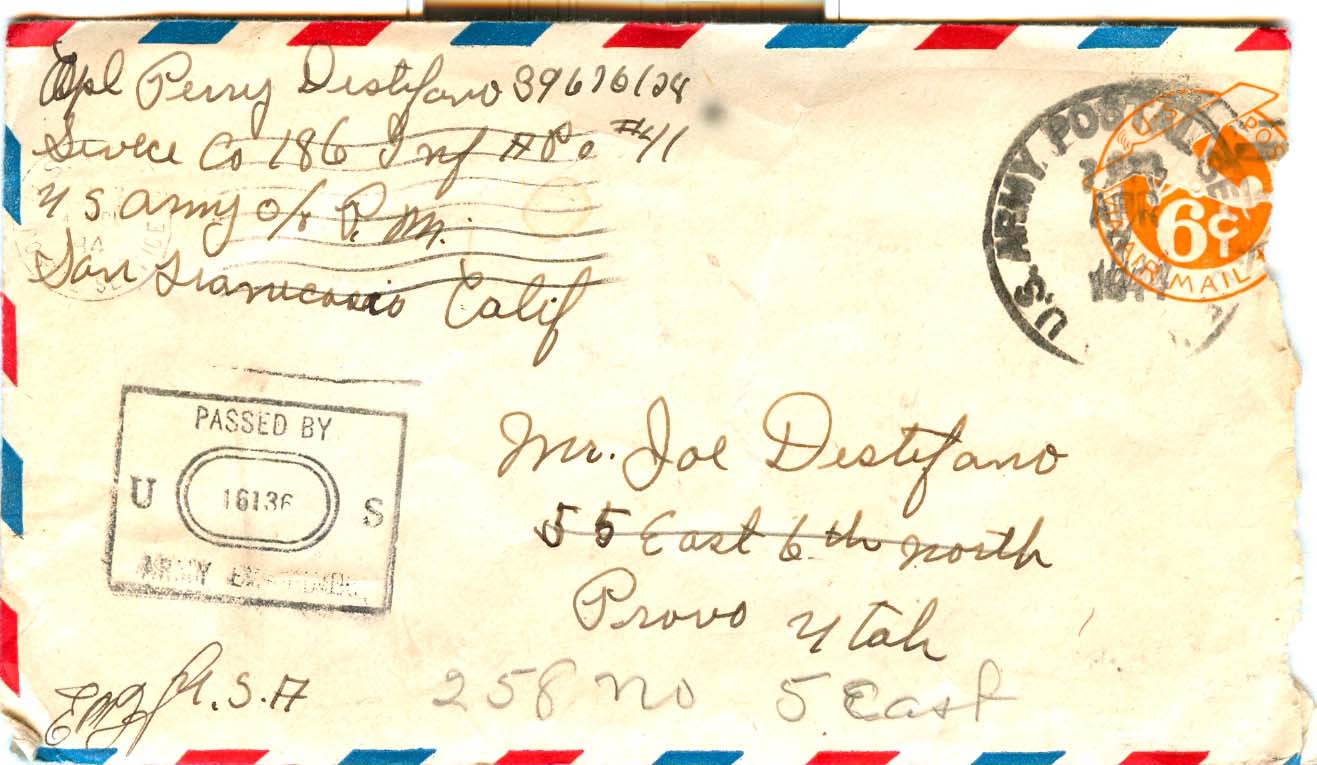 Cpl Perry Destefano 39676128
Servece Co 186 Inf APo #41
U S Army c/o P. M.
San Franicasio Calif
U.S. ARMY POSTAL SE
APR
1944
6¢
AIR MAIL
PASSED BY
U 16136 S
ARMY EXAMINER
Mr. Joe Destefano
55 East 6th North
Provo Utah
258 No 5 East
U.S.A